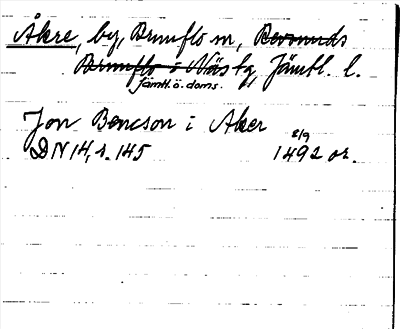 Åkre, by, Brunflo sn, Revsunds
Brunflo o. Näs tg, Jämtl. l.
Jämtl. ö. doms.
Jon Bencson i Aker
8/9
DN 14, s. 145 1492 or.